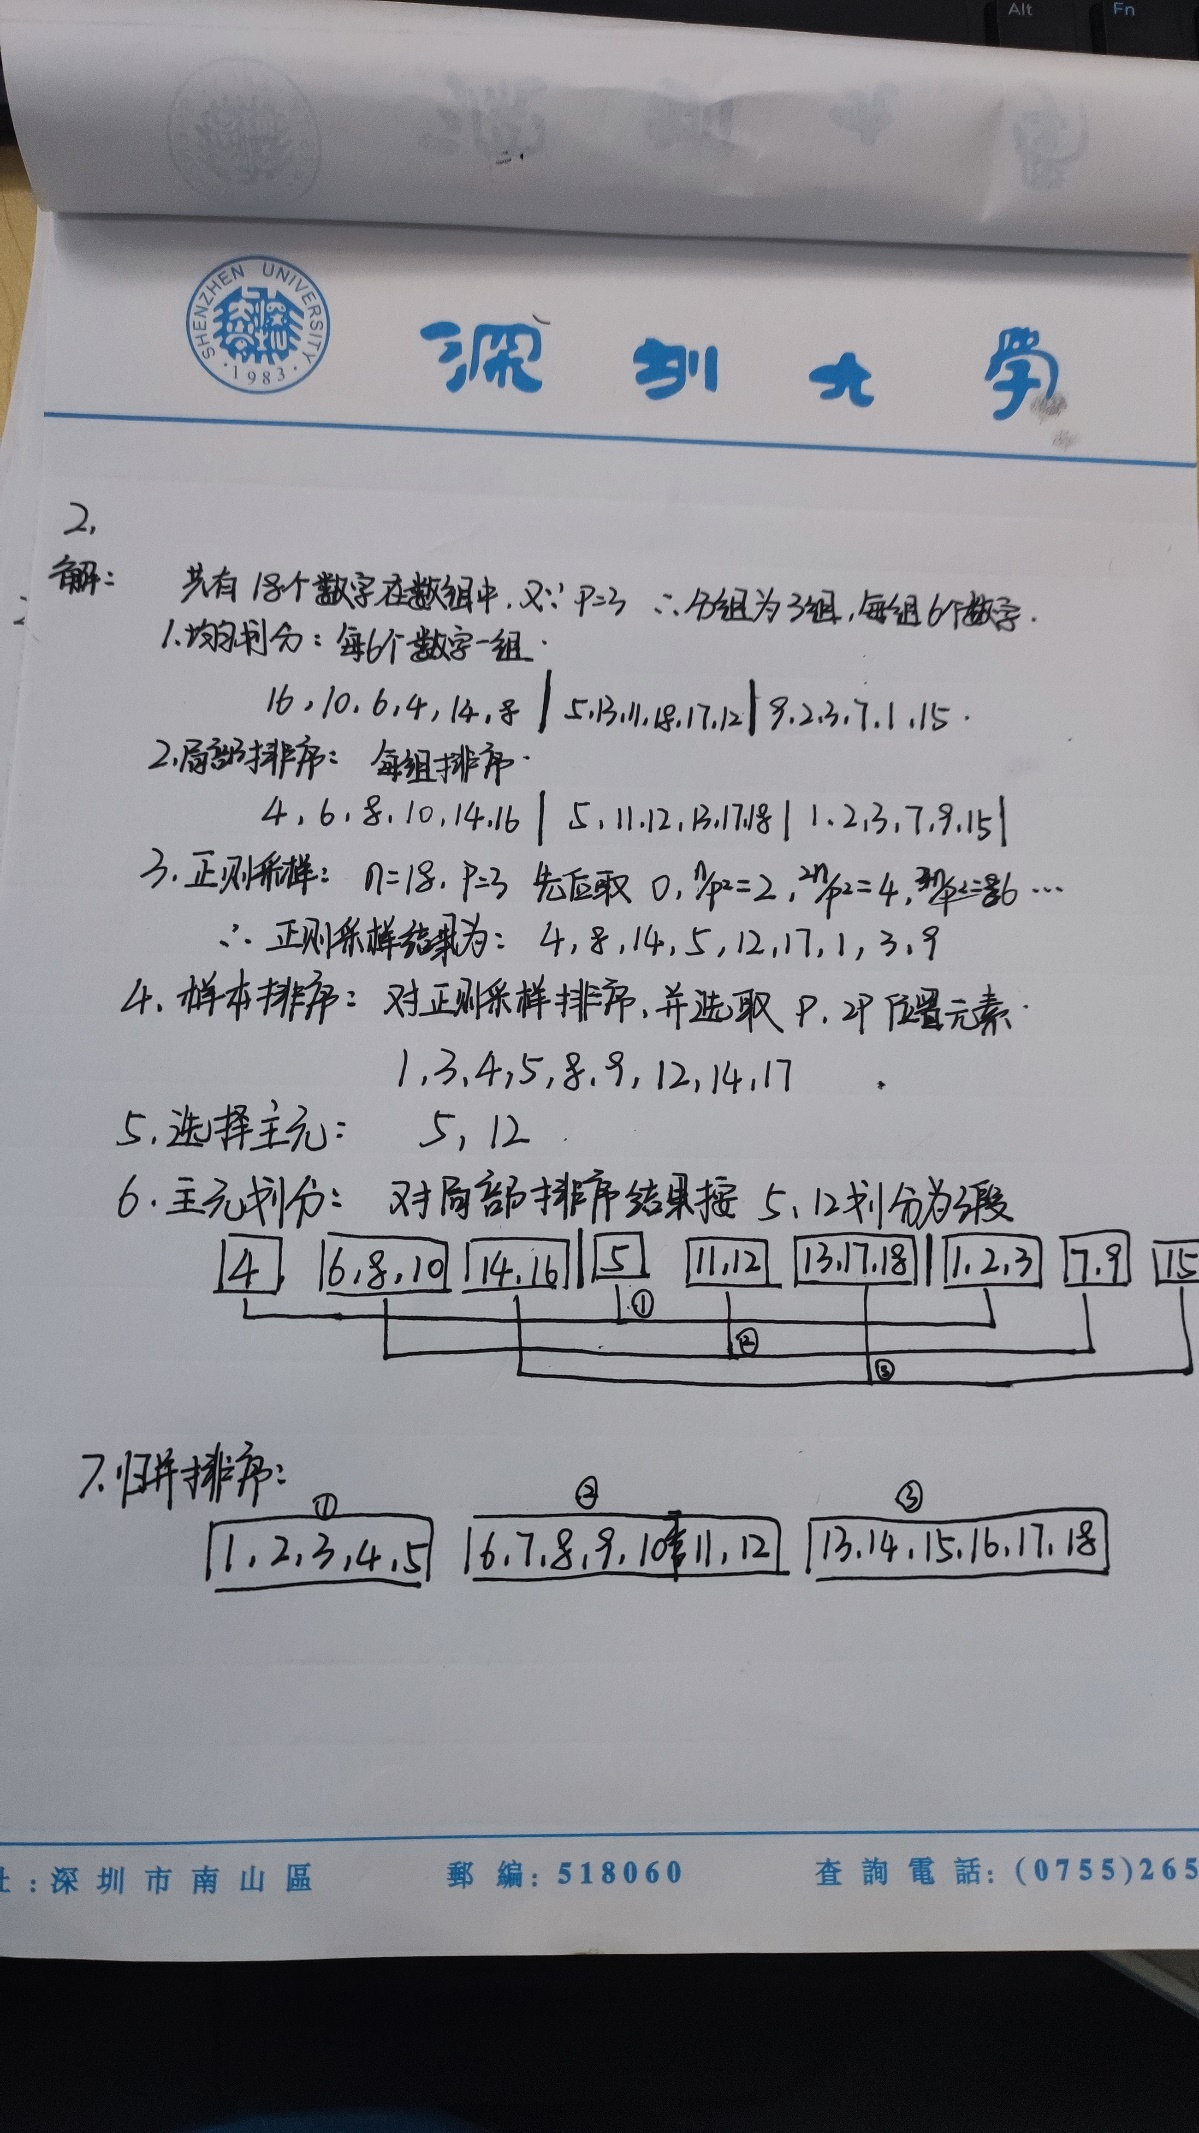 Alt Fn
SHENZHEN UNIVERSITY
·1983·
深圳大学
2.
解: 共有18个数字在数组中.又∵P=3 ∴分组为3组,每组6个数字.
1.均匀划分:每6个数字一组.
16,10,6,4,14,8 | 5,13,11,18,17,12 | 9,2,3,7,1,15.
2.局部排序: 每组排序.
4,6,8,10,14,16 | 5,11,12,13,17,18 | 1,2,3,7,9,15 |
3.正则采样: n=18,P=3 先后取 0, n/p²=2, 2n/p²=4, 3n/p²=6 ···
∴ 正则采样结果为: 4,8,14,5,12,17,1,3,9
4.样本排序: 对正则采样排序,并选取 P,2P 位置元素.
1,3,4,5,8,9,12,14,17
5.选择主元: 5,12
6.主元划分: 对局部排序结果按 5,12划分为3段
4 6,8,10 14,16 | 5 11,12 13,17,18 | 1,2,3 7,9 15
①
②
③
7.归并排序:
① ② ③
1,2,3,4,5 6,7,8,9,10,11,12 13,14,15,16,17,18
:深圳市南山區 郵編:518060 查詢電話:(0755)265